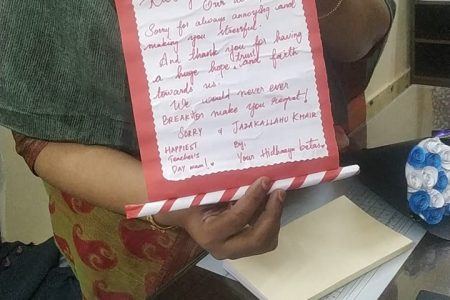 Sorry for always annoying and
making you stressful.
And thank you for having
a huge hope, trust and faith
towards us.
We would never ever
BREAK or make you regret!
SORRY & JAZAKALLAHU KHAIR
HAPPIEST
Teacher's
DAY mam!
By,
Your Hidhaaya betas